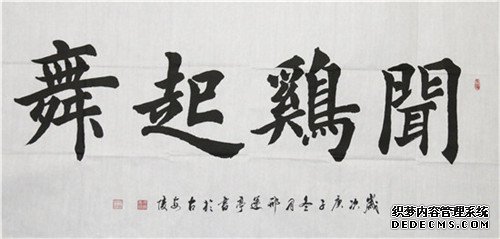 聞鷄起舞
歲次庚子冬月邢亭書於古安陵
织梦内容管理系统
DEDECMS.COM